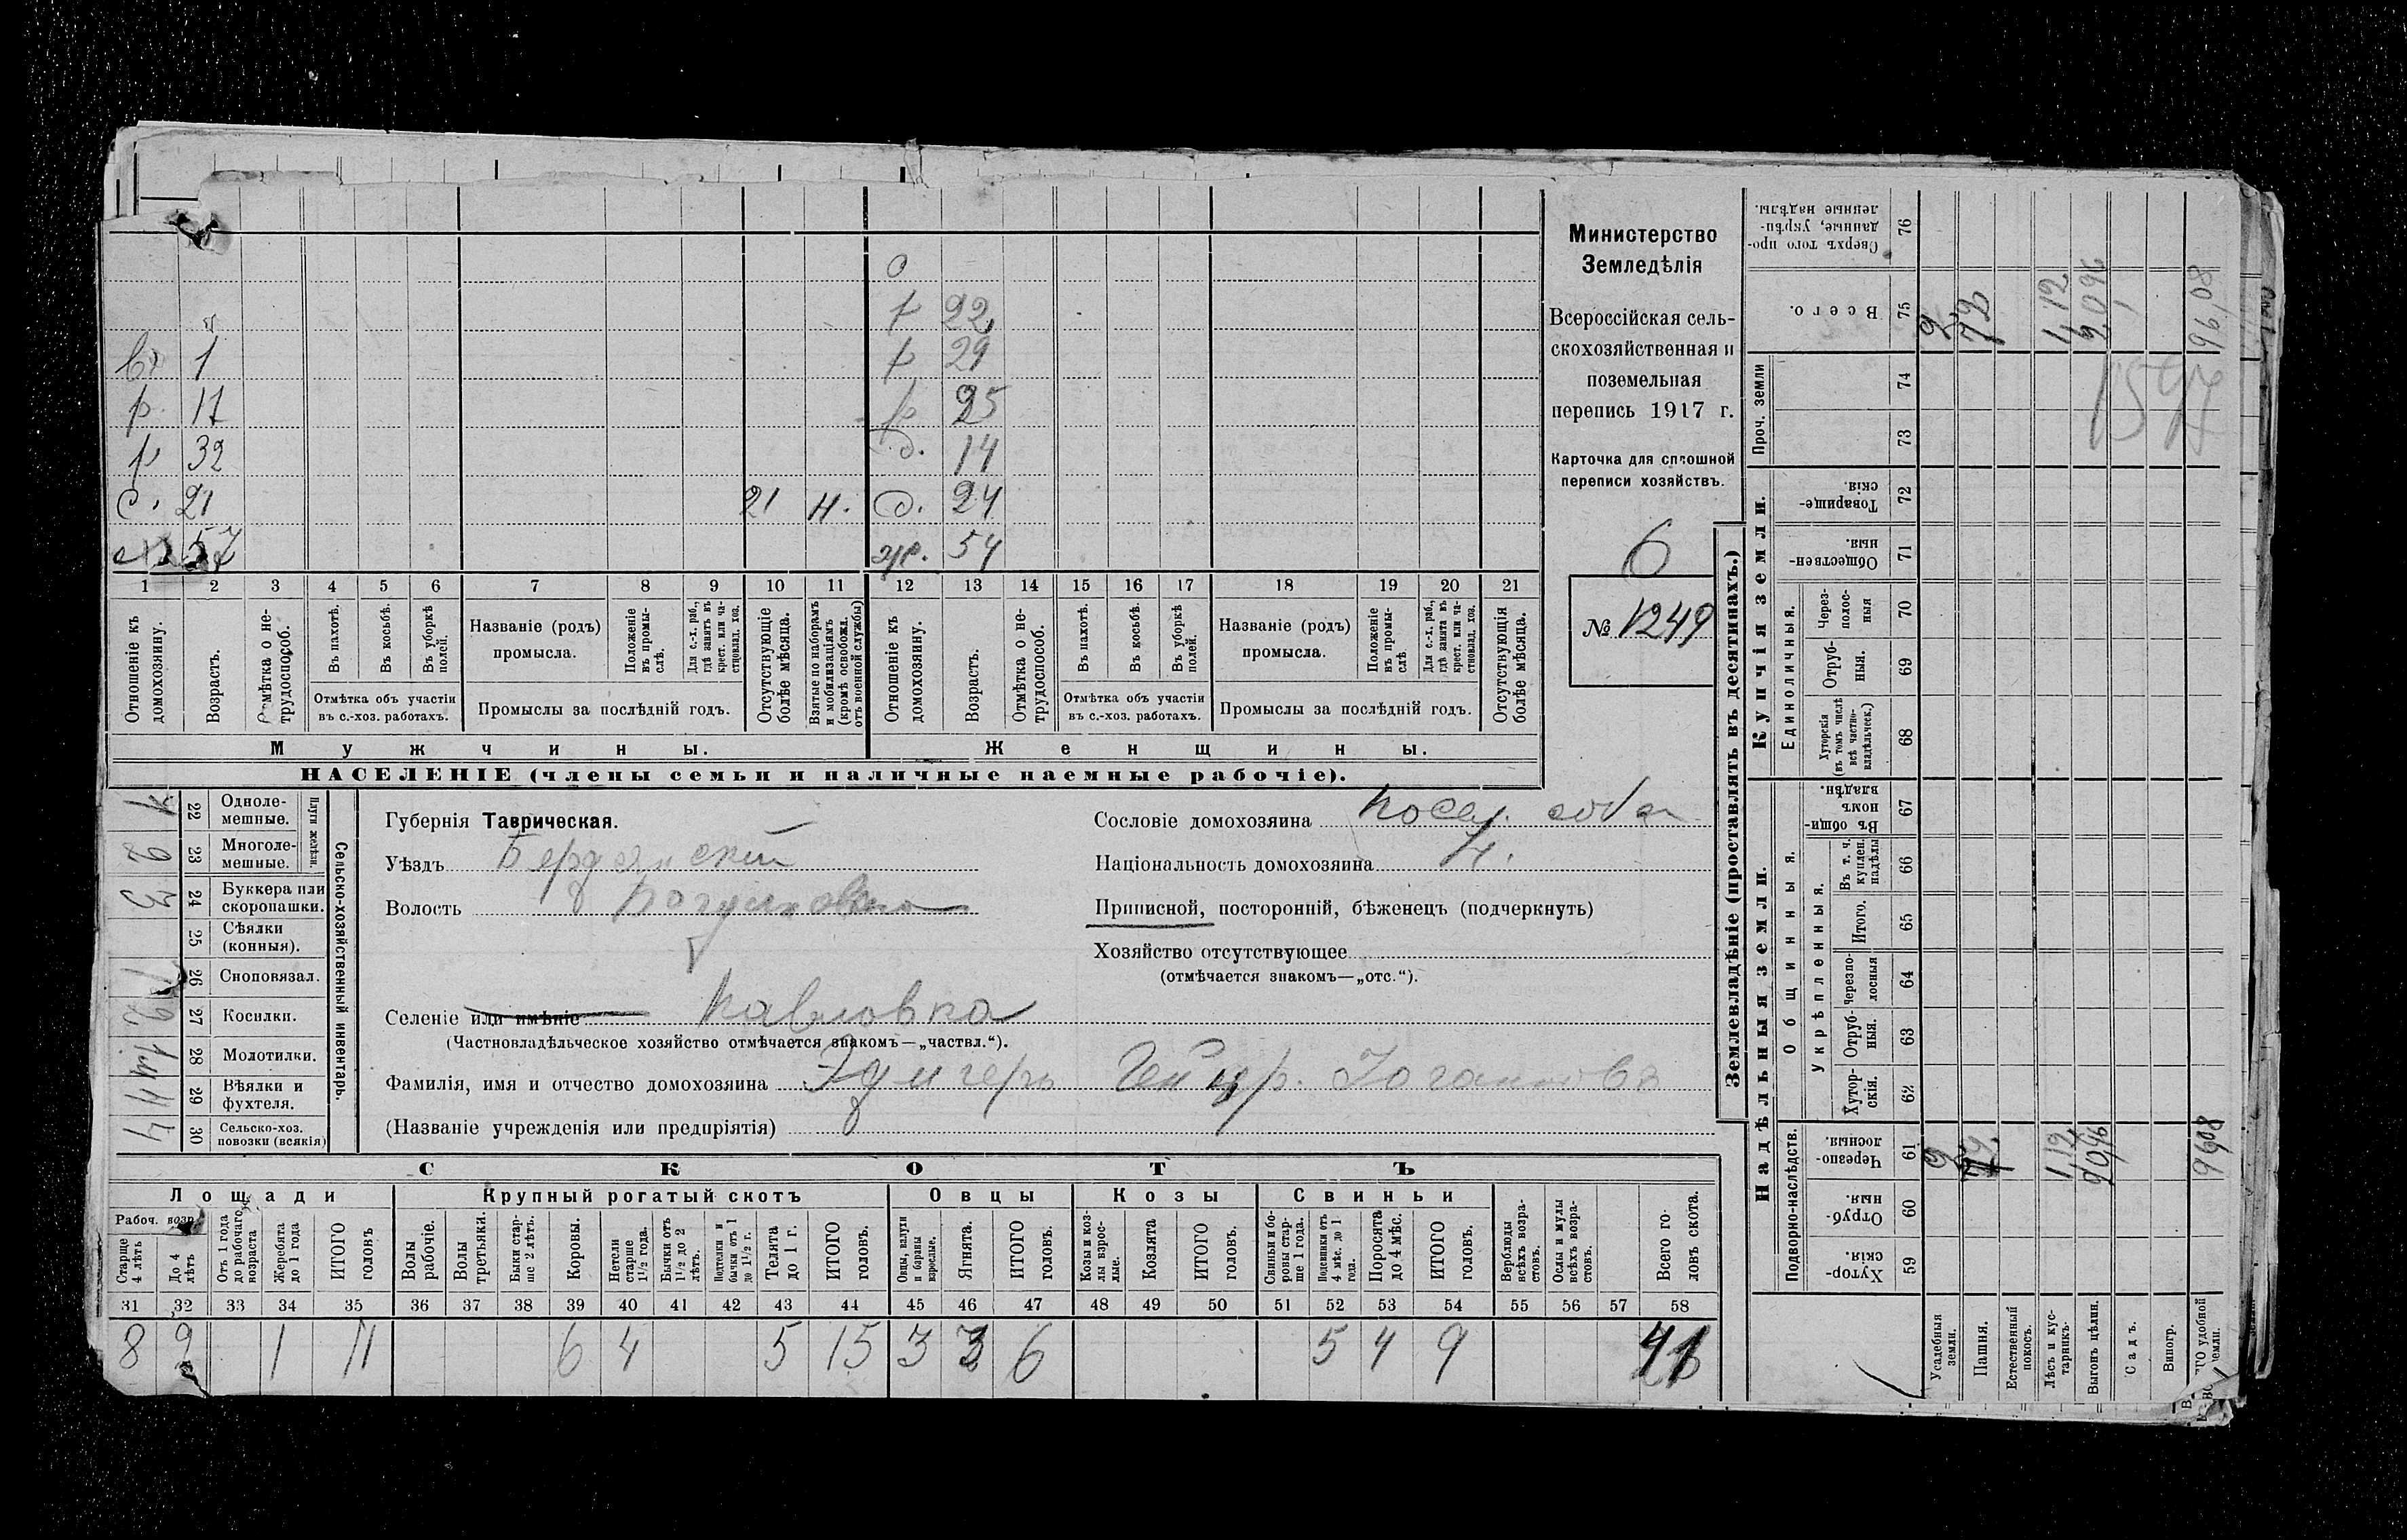 о
р 22
р 29
1
р. 17 р 25
р 32 д. 14
с. 21 21 н. д. 24
57 ж. 54
1 2 3 4 5 6 7 8 9 10 11 12 13 14 15 16 17 18 19 20 21
Отношеніе къ домохозяину.
Возрастъ.
Отмѣтка о нетрудоспособ.
Въ пахотѣ.
Въ косьбѣ.
Въ уборкѣ полей.
Отмѣтка объ участіи въ с.-хоз. работахъ.
Названіе (родъ) промысла.
Положеніе въ промыслѣ.
Для с.-х. раб., гдѣ занятъ въ крест. или частновлад. хоз.
Промыслы за послѣдній годъ.
Отсутствующіе болѣе мѣсяца.
Взятые по наборамъ и мобилизаціямъ (кромѣ освобожд. отъ военной службы)
Отношеніе къ домохозяину.
Возрастъ.
Отмѣтка о нетрудоспособ.
Въ пахотѣ.
Въ косьбѣ.
Въ уборкѣ полей.
Отмѣтка объ участіи въ с.-хоз. работахъ.
Названіе (родъ) промысла.
Положеніе въ промыслѣ
Для с.-х. раб., гдѣ занята въ крест. или частновлад. хоз.
Промыслы за послѣдній годъ.
Отсутствующія болѣе мѣсяца.
Мужчины.
Женщины.
НАСЕЛЕНІЕ (члены семьи и наличные наемные рабочіе).
Министерство
Земледѣлія
Всероссійская сель-
скохозяйственная и
поземельная
перепись 1917 г.
Карточка для сплошной
переписи хозяйствъ.
6
№ 1249
1 22 Одноле-
мешные.
2 23 Многоле-
мешные.
Плуги желѣзн.
3 24 Буккера или
скоропашки.
25 Сѣялки
(конныя).
1 26 Сноповязал.
2 27 Косилки.
1 28 Молотилки.
29 Вѣялки и
фухтеля.
4 30 Сельско-хоз.
повозки (всякія)
Сельско-хозяйственный инвентарь.
Губернія Таврическая.
Уѣздъ Бердянскій
Волость Богдановка
Селеніе или имѣніе Павловка
(Частновладѣльческое хозяйство отмѣчается знакомъ—„частвл.“).
Фамилія, имя и отчество домохозяина Эдигеръ Генр. Іогановъ
(Названіе учрежденія или предпріятія)
Сословіе домохозяина посел. соб.
Національность домохозяина Н.
Приписной, посторонній, бѣженецъ (подчеркнуть)
Хозяйство отсутствующее
(отмѣчается знакомъ—„отс.“).
СКОТЪ
Лошади
Крупный рогатый скотъ
Овцы
Козы
Свиньи
Рабоч. возр.
Старше 4 лѣтъ
До 4 лѣтъ
Отъ 1 года до рабочаго возраста
Жеребята до 1 года
ИТОГО головъ
Волы рабочіе.
Волы третьяки.
Быки старше 2 лѣтъ.
Коровы.
Нетели старше 1½ года.
Бычки отъ 1½ до 2 лѣтъ.
Подтелки и бычки отъ 1 до 1½ г.
Телята до 1 г.
ИТОГО головъ.
Овцы, валухи и бараны взрослые.
Ягнята.
ИТОГО головъ.
Козы и козлы взрослые.
Козлята
ИТОГО головъ.
Свиньи и боровы старше 1 года.
Подсвинки отъ 4 мѣс. до 1 года.
Поросята до 4 мѣс.
ИТОГО головъ.
Верблюды всѣхъ возрастовъ.
Ослы и мулы всѣхъ возрастовъ.
Всего головъ скота.
31 32 33 34 35 36 37 38 39 40 41 42 43 44 45 46 47 48 49 50 51 52 53 54 55 56 57 58
8 2 1 11 6 4 5 15 3 3 6 5 4 9 41
Землевладѣніе (проставлять въ десятинахъ.)
Купчія земли.
Надѣльныя земли.
Сверхъ того проданные, укрѣпленные надѣлы. 76
Всего. 75
2 1,12 9,096 1 96,08
Проч. земли
74
73
1597
Товарищескія. 72
Общественныя. 71
Единоличныя.
Черезполосныя 70
Отрубныя. 69
Хуторскія (въ томъ числѣ всѣ частновладѣльческ.) 68
Общинныя.
Въ общиномъ владѣн. 67
Укрѣпленныя.
Въ т. ч. куплен. надѣлы 66
Итого. 65
Черезполосныя 64
Отрубныя. 63
Хуторскія. 62
Подворно-наслѣдств.
Черезполосныя. 61
2 1,12 96,08
Отрубныя. 60
Хуторскія. 59
Усадебныя земли.
Пашня.
Естественный покосъ.
Лѣсъ и кустарникъ.
Выгонъ цѣлин.
Садъ.
Виногр.
удобной земли.